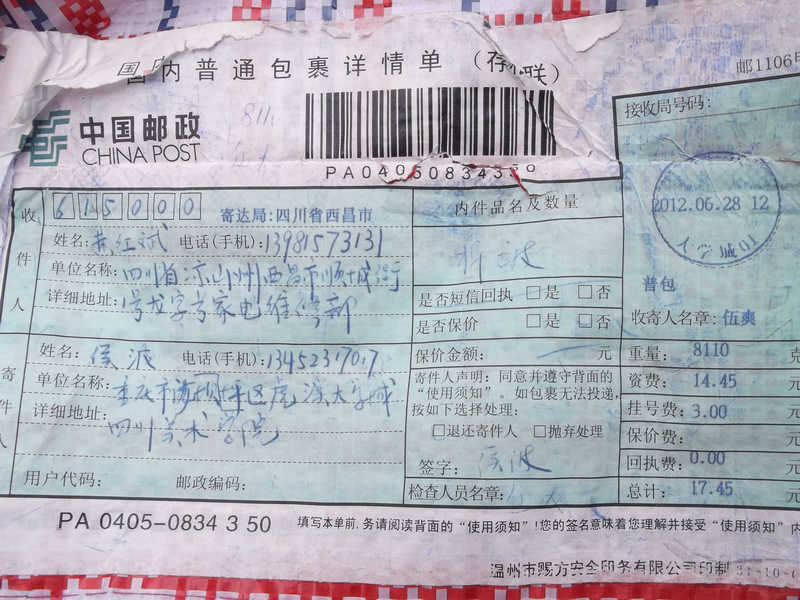 国内普通包裹详情单
邮1106
中国邮政
CHINA POST
811
PA04050834350
接收局号码:
2012.06.28 12
大学城
收件人
615000
寄达局:四川省西昌市
姓名: 电话(手机):13981573131
单位名称:四川省凉山州西昌市顺城街
详细地址:1号 专家电维修部
内件品名及数量
是否短信回执 □是 □否
是否保价 □是 □否
保价金额: 元
普包
收寄人名章:伍爽
寄件人
姓名:侯波 电话(手机):13452317017
单位名称:重庆市 区虎溪大学城
详细地址:四川美术学院
用户代码: 邮政编码:
寄件人声明:同意并遵守背面的
“使用须知”。如包裹无法投递,
按如下选择处理:
□退还寄件人 □抛弃处理
签字:侯波
检查人员名章:
重量: 8110 克
资费: 14.45 元
挂号费: 3.00 元
保价费: 元
回执费: 0.00 元
总计: 17.45 元
PA 0405-0834 3 50
填写本单前,务请阅读背面的“使用须知”!您的签名意味着您理解并接受“使用须知”内
温州市赐方安全印务有限公司印制